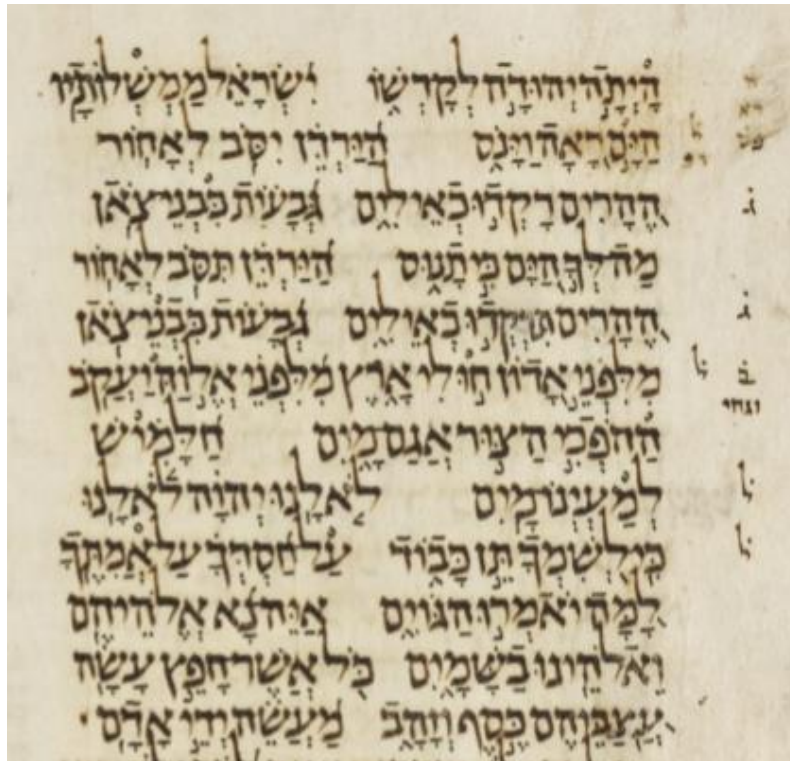 הָיְתָה יְהוּדָה לְקָדְשׁוֹ יִשְׂרָאֵל מַמְשְׁלוֹתָיו
הַיָּם רָאָה וַיָּנֹס הַיַּרְדֵּן יִסֹּב לְאָחוֹר
ג הֶהָרִים רָקְדוּ כְאֵילִים גְּבָעוֹת כִּבְנֵי צֹאן
מַה לְּךָ הַיָּם כִּי תָנוּס הַיַּרְדֵּן תִּסֹּב לְאָחוֹר
ג הֶהָרִים תִּרְקְדוּ כְאֵילִים גְּבָעוֹת כִּבְנֵי צֹאן
ב ל מִלִּפְנֵי אָדוֹן חוּלִי אָרֶץ מִלִּפְנֵי אֱלוֹהַּ יַעֲקֹב
הַהֹפְכִי הַצּוּר אֲגַם מָיִם חַלָּמִישׁ
ל לְמַעְיְנוֹ מָיִם לֹא לָנוּ יְהוָה לֹא לָנוּ
ל כִּי לְשִׁמְךָ תֵּן כָּבוֹד עַל חַסְדְּךָ עַל אֲמִתֶּךָ
לָמָּה יֹאמְרוּ הַגּוֹיִם אַיֵּה נָא אֱלֹהֵיהֶם
וֵאלֹהֵינוּ בַשָּׁמָיִם כֹּל אֲשֶׁר חָפֵץ עָשָׂה
עֲצַבֵּיהֶם כֶּסֶף וְזָהָב מַעֲשֵׂה יְדֵי אָדָם